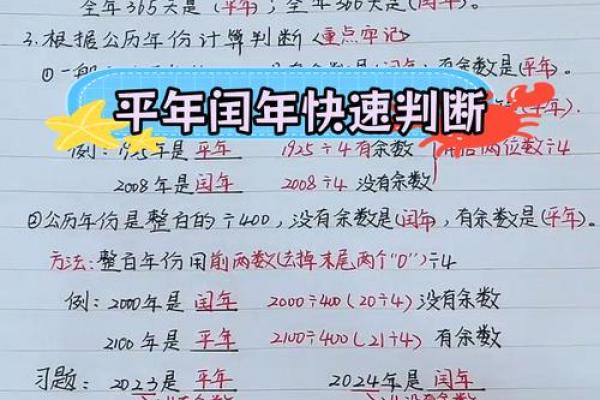 全年365天是(平年)；全年366天是(闰年)。
3.根据公历年份计算判断<重点牢记>
①一般 有余数是(平年)。
平年闰年快速判断
(平年).
例：1925年是 平年 1925÷4有余数 后两位数÷4
2008年是闰年 2008÷4 没有余数
②公历年份是整百的÷400，没有余数是(闰年)，有余数是(平年)。
方法：整百年份用前两数(去掉末尾两个"0")÷4
例：2000年是 闰年 2000÷400(20÷4)没有余数
2100年是 平年 2100÷400(21÷4) 有余数
习题：2023是 平年 2024年是 闰年